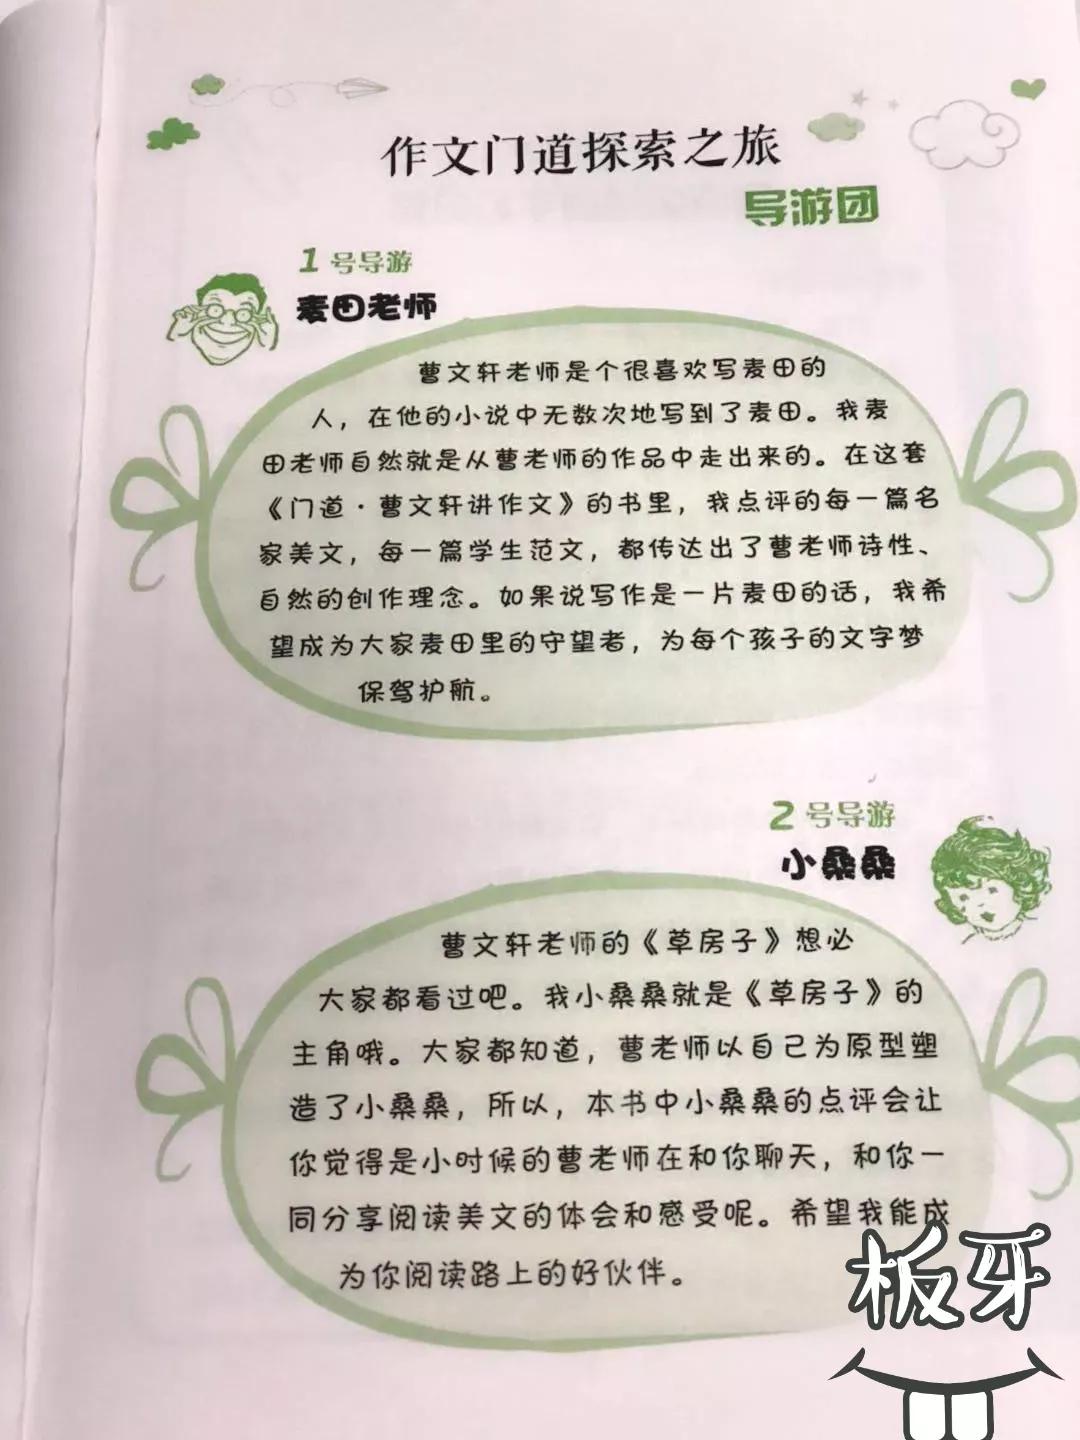 作文门道探索之旅
导游团
1号导游
麦田老师
曹文轩老师是个很喜欢写麦田的
人，在他的小说中无数次地写到了麦田。我麦
田老师自然就是从曹老师的作品中走出来的。在这套
《门道·曹文轩讲作文》的书里，我点评的每一篇名
家美文，每一篇学生范文，都传达出了曹老师诗性、
自然的创作理念。如果说写作是一片麦田的话，我希
望成为大家麦田里的守望者，为每个孩子的文字梦
保驾护航。
2号导游
小桑桑
曹文轩老师的《草房子》想必
大家都看过吧。我小桑桑就是《草房子》的
主角哦。大家都知道，曹老师以自己为原型塑
造了小桑桑，所以，本书中小桑桑的点评会让
你觉得是小时候的曹老师在和你聊天，和你一
同分享阅读美文的体会和感受呢。希望我能成
为你阅读路上的好伙伴。
板牙